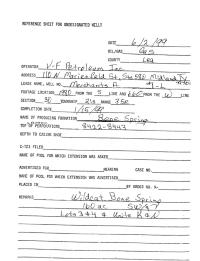 REFERENCE SHEET FOR UNDESIGNATED WELLY
DATE 6/2/99
OIL/GAS Gas
COUNTY Lea
OPERATOR V-F Petroleum Inc
ADDRESS 110 N Marienfeld St, Ste 580 Midland TX
LEASE NAME, WELL NO. Merchants A #1-L
FOOTAGE LOCATION, 1980 FROM THE S LINE AND 660 FROM THE W LINE
SECTION 30 TOWNSHIP 21S RANGE 35E
COMPLETION DATE 1/15/99
NAME OF PRODUCING FORMATION Bone Spring
TOP OF PERFORATIONS 8422-8443
DEPTH TO CASING SHOE
C-123 FILED
NAME OF POOL FOR WHICH EXTENSION WAS ASKED
ADVERTISED FOR HEARING CASE NO.
NAME OF POOL FOR WHICH EXTENSION WAS ADVERTISED
PLACED IN BY ORDER NO. R-
REMARKS Wildcat Bone Spring
160 ac SW/4
Lots 3 & 4 & Units K & N